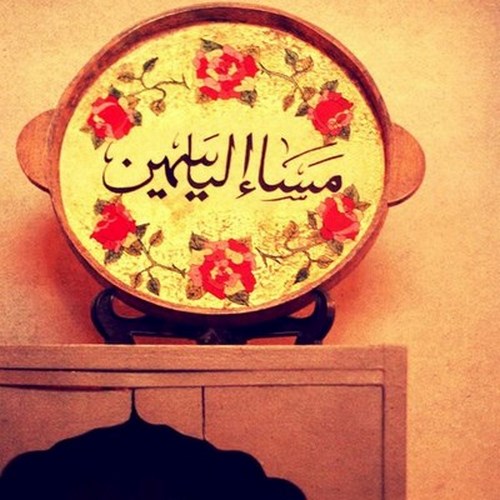 مَسَاء اليَاسمين